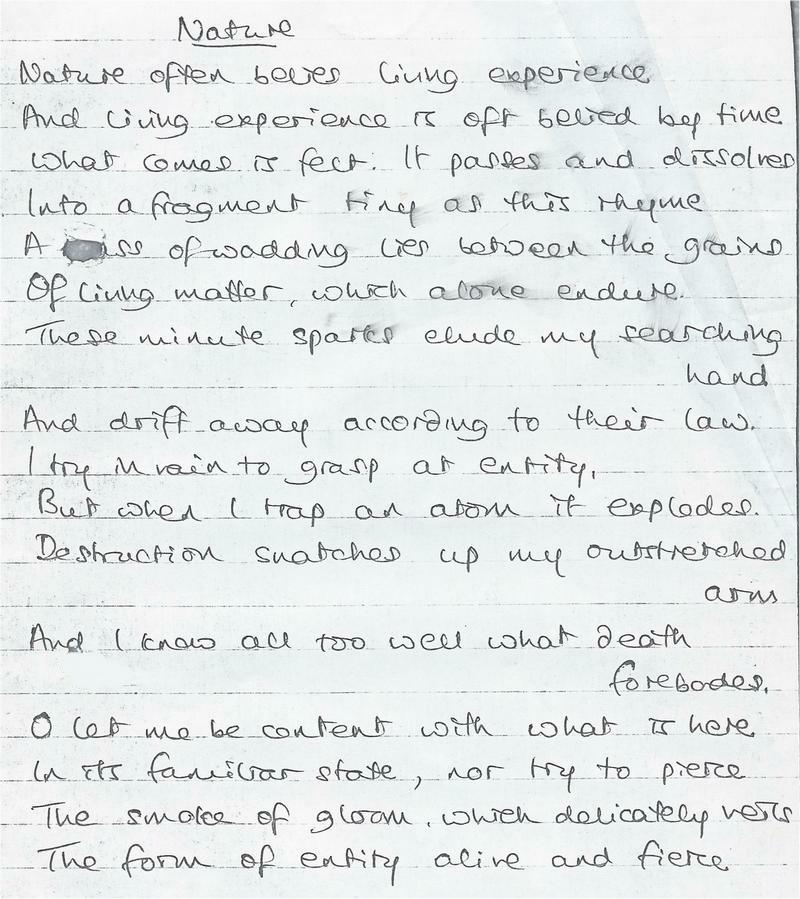 Nature
Nature often belies living experience
And living experience is oft belied by time
What comes is fect. It passes and dissolves
Into a fragment tiny as this rhyme
A of wadding lies between the grains
Of living matter, which alone endure.
These minute sparks elude my searching
hand
And drift away according to their law.
I try in vain to grasp at entity,
But when I trap an atom it explodes.
Destruction snatches up my outstretched
arm
And I know all too well what death
forebodes.
O let me be content with what is here
In its familiar state, nor try to pierce
The smoke of gloom, which delicately veils
The form of entity alive and fierce